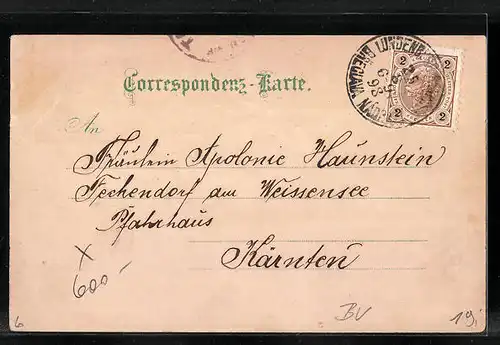 Correspondenz-Karte.
An
Fräulein Apolonie Haunstein
Techendorf am Weissensee
Pfahrhaus
Kärnten
LUNDENB
BŘECLAV
2 2
2 2
X
600,-
6
BV
19,